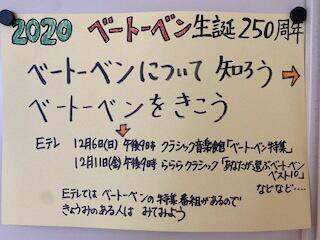 2020 ベートーベン生誕250周年
ベートーベンについて知ろう→
ベートーベンをきこう
Eテレ 12月6日(日)午後9時 クラシック音楽館「ベートーベン特集」
12月11日(金)午後9時 らららクラシック「あなたが選ぶベートーベン
ベスト10」
などなど....
Eテレでは ベートーベンの特集番組があるので
きょうみのある人は みてみよう